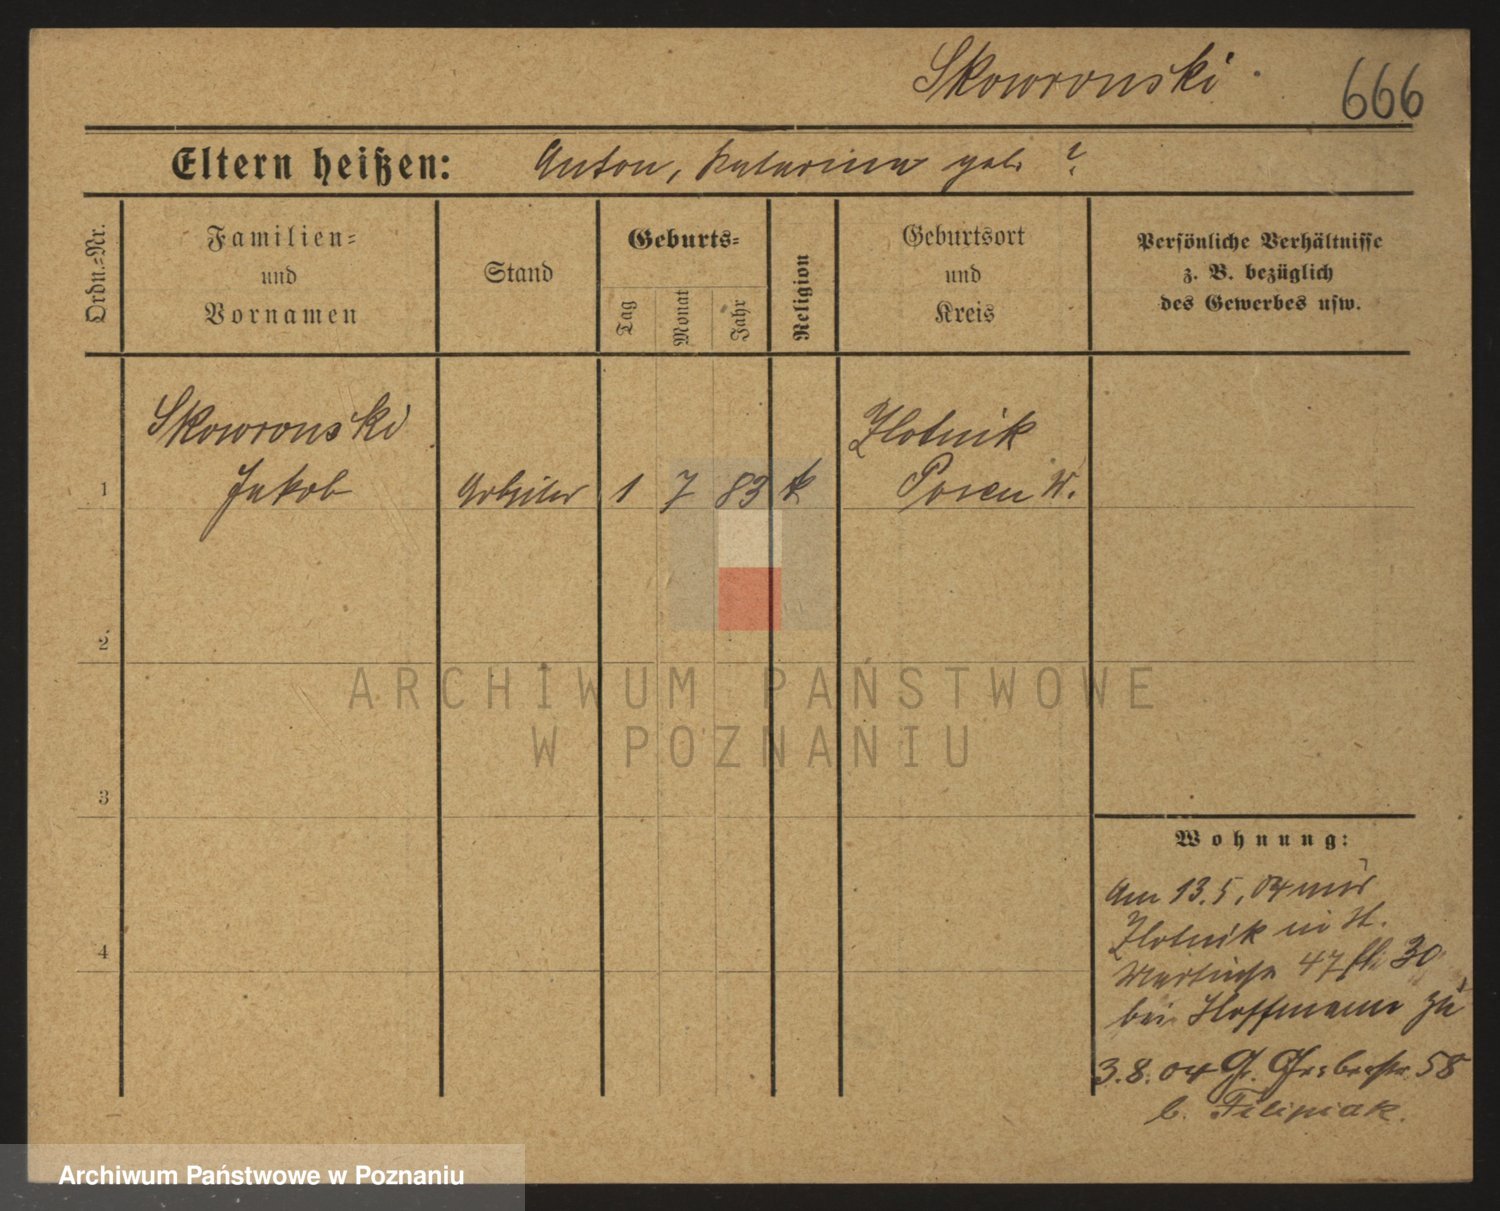 Skowronski
666
Eltern heißen: Anton, Katarina geb. ?
Ordn.-Nr.
Familien-
und
Vornamen
Stand
Geburts-
Tag
Monat
Jahr
Religion
Geburtsort
und
Kreis
Persönliche Verhältnisse
z. B. bezüglich
des Gewerbes usw.
Skowronski
Zlotnik
1 Jakob Arbeiter 1 7 83 k Posen W.
2
ARCHIWUM PAŃSTWOWE
W POZNANIU
3
Wohnung:
Am 13.5.04 aus
Zlotnik in St.
4
47 30
bei Hoffmann zu
3.8.04 Gr. Gerberstr. 58
b. Filipiak.
Archiwum Państwowe w Poznaniu